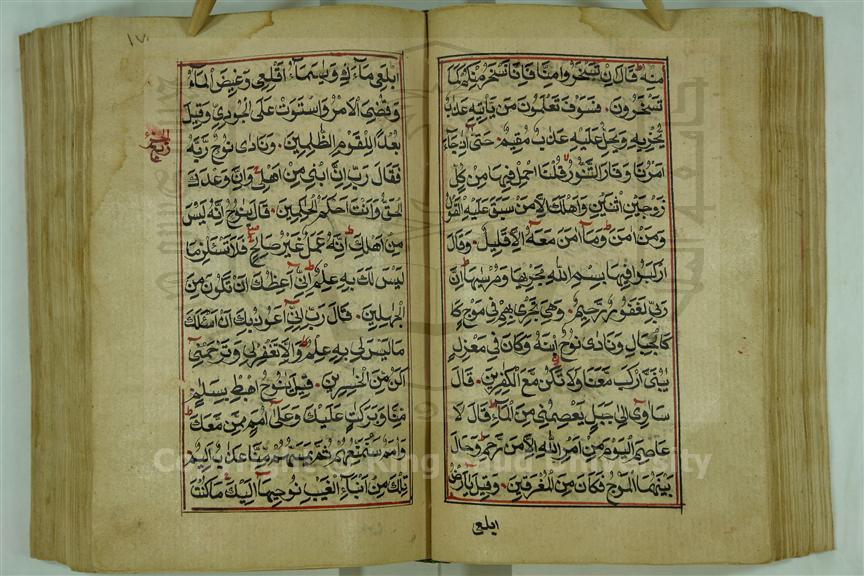 منه قال ان تسخروا منا فانا نسخر منكم كما
تسخرون فسوف تعلمون من ياتيه عذاب
يخزيه ويحل عليه عذاب مقيم حتى اذا جآء
امرنا وفار التنور قلنا احمل فيها من كل
زوجين اثنين واهلك الا من سبق عليه القول
ومن امن وما امن معه الا قليل وقال
اركبوا فيها بسم الله مجريها ومرسيها ان
ربي لغفور رحيم وهي تجري بهم في موج كا
كالجبال ونادى نوح ابنه وكان في معزل
يبني اركب معنا ولا تكن مع الكفرين قال
ساوي الى جبل يعصمني من المآء قال لا
عاصم اليوم من امر الله الا من رحم وحال
بينهما الموج فكان من المغرقين وقيل يارض
ابلعي
١٧
ابلعي مآءك ويسمآء اقلعي وغيض المآء
وقضي الامر واستوت على الجودي وقيل
بعدا للقوم الظلمين ونادى نوح ربه
فقال رب ان ابني من اهلي وان وعدك
الحق وانت احكم الحكمين قال ينوح انه ليس
من اهلك انه عمل غير صالح فلا تسئلن ما
ليس لك به علم اني اعظك ان تكون من
الجهلين قال رب اني اعوذ بك ان اسئلك
ما ليس لي به علم والا تغفر لي وترحمني
اكن من الخسرين قيل ينوح اهبط بسلم
منا وبركت عليك وعلى امم ممن معك
وامم سنمتعهم ثم يمسهم منا عذاب اليم
تلك من انبآء الغيب نوحيهآ اليك ما كنت
Copyright © King Saud University